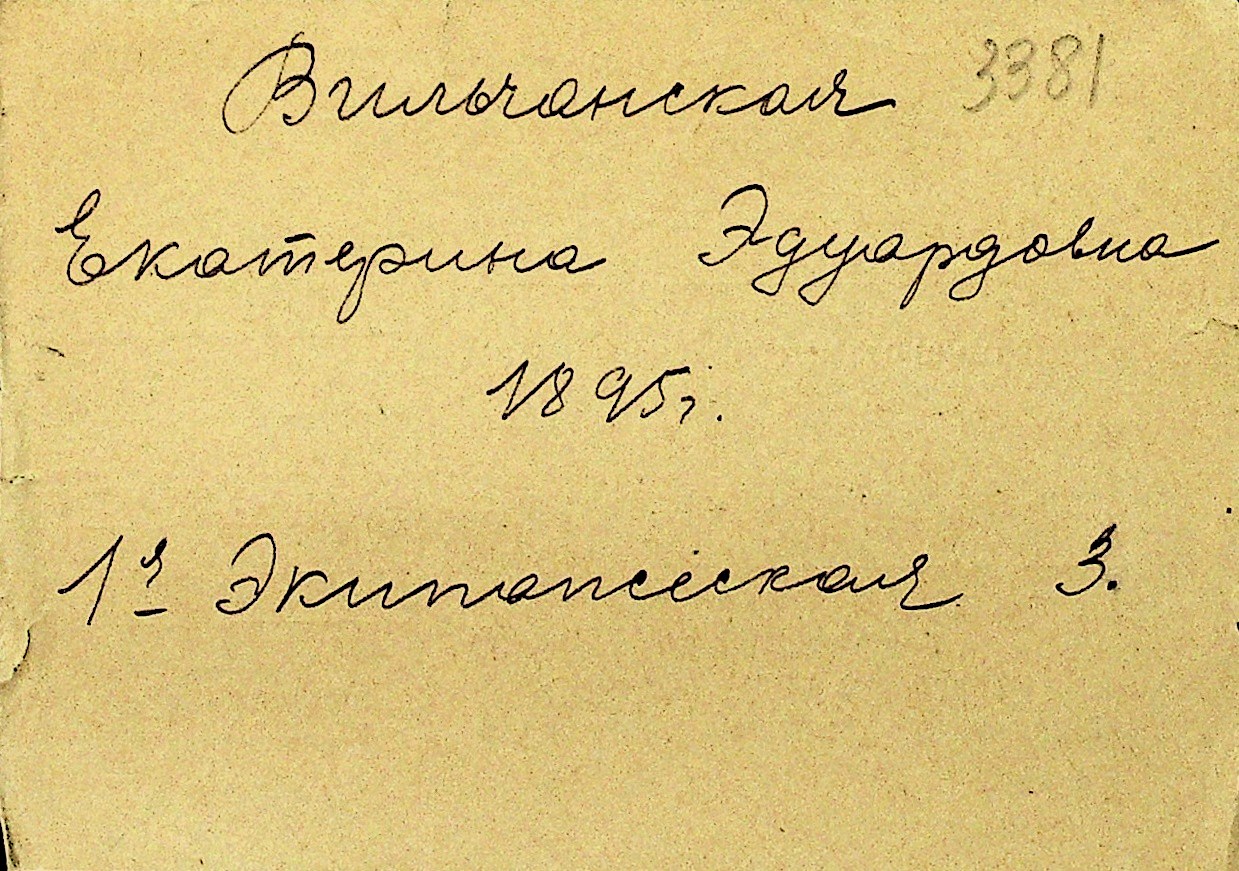 Вильчанская 3381
Екатерина Эдуардовна
1895 г.
1я Экипажеская 3.